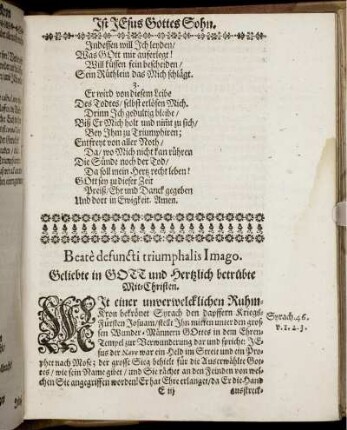 Ist JEsus Gottes Sohn.
Indessen will Ich leyden/
Was GOtt mir auferlegt!
Will küssen fein bescheiden/
Sein Rüthlein das Mich schlägt.
3.
Er wird von diesem Leibe
Des Todtes/ selbst erlösen Mich.
Drinn Ich gedultig bleibe/
Biß Er Mich holt und nimt zu sich/
Bey Ihm zu Triumphiren;
Entfreyt von aller Noth/
Da/ wo Mich nicht kan rühren
Die Sünde noch der Tod/
Da soll mein Hertz recht leben!
GOtt sey zu dieser Zeit
Preiß/ Ehr und Danck gegeben
Und dort in Ewigkeit. Amen.
Beatè defuncti triumphalis Imago.
Geliebte in GOTT und Hertzlich betrübte
Mit-Christen.
Mit einer unverwelcklichen Ruhm-
Kron bekrönet Syrach den dapffern Kriegs-
Fürsten Josuam/ stellt Ihn mitten unter den gros-
sen Wunder-Männern GOttes in dem Ehren-
Tempel zur Verwunderung dar und spricht: JE-
sus der Nave war ein Held im Streit und ein Pro-
phet nach Mose; der grosse Sieg behielt für die Auserwählte Got-
tes/ wie sein Name gibet/ und Sie rächet an den Feinden von wel-
chen Sie angegriffen worden! Er hat Ehre erlanget/ da Er die Hand
Syrach. 46.
v. 1. 2. 3.
E iij
ausstreck-